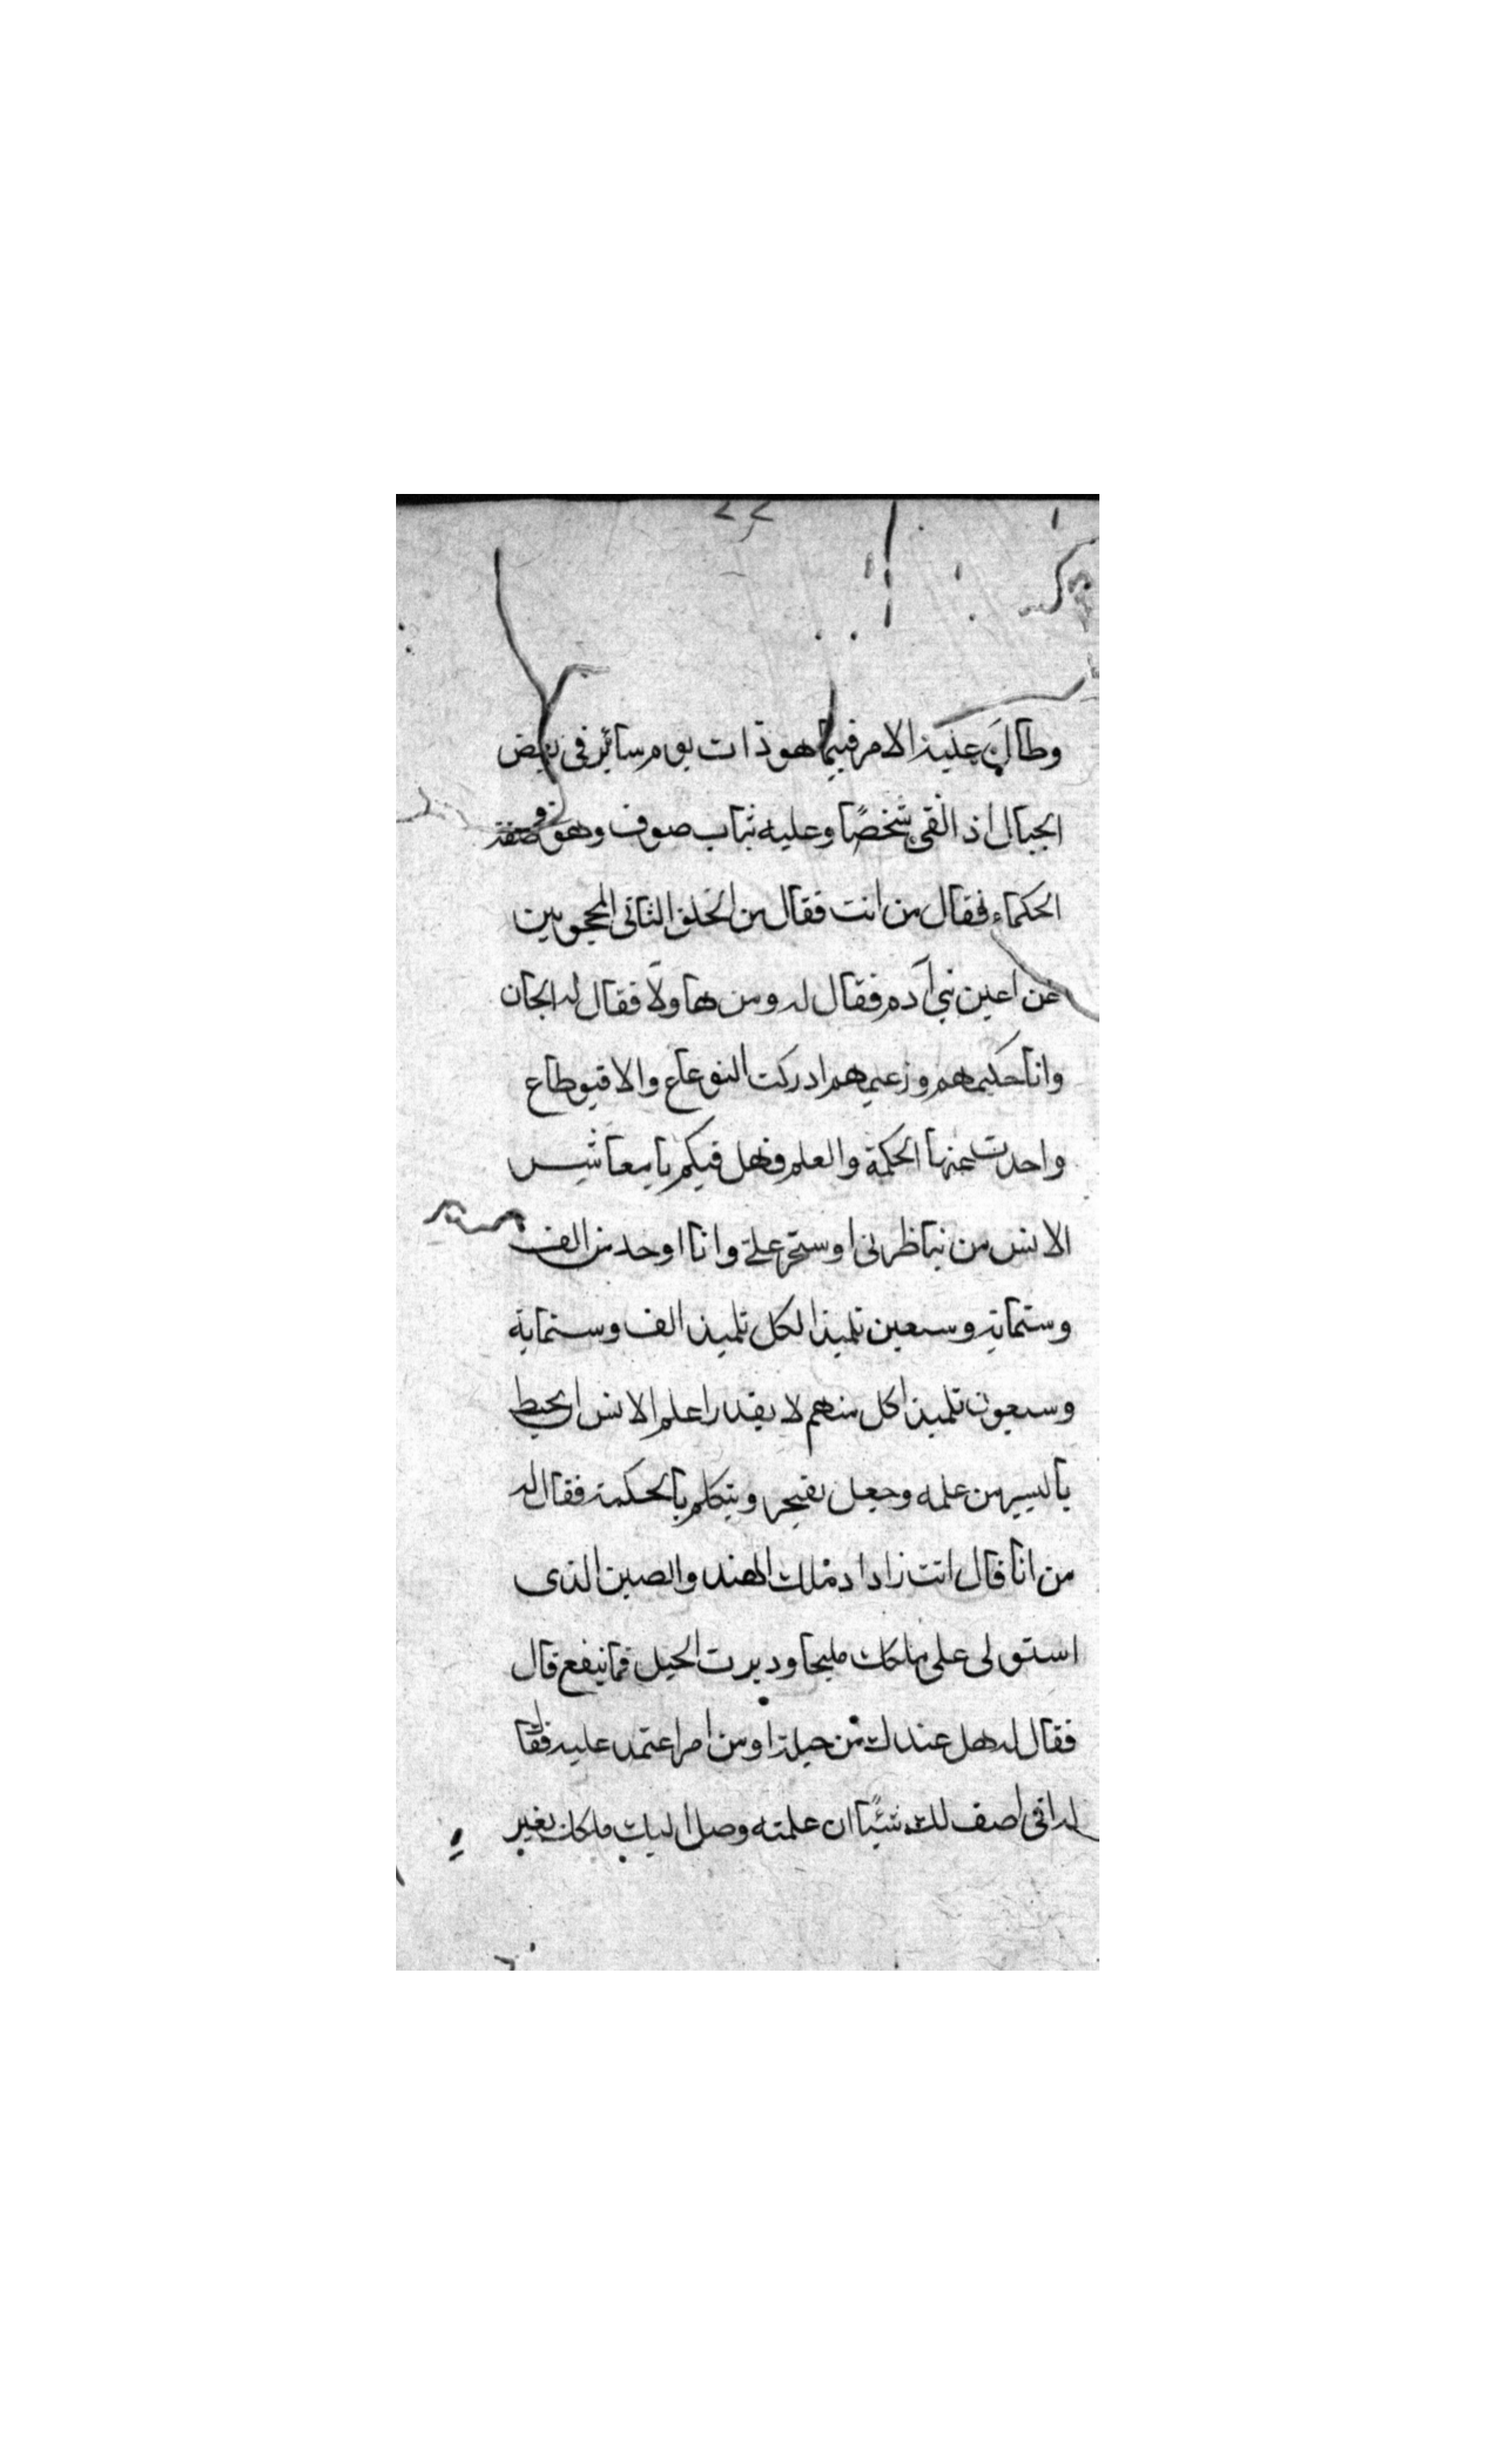 وطال عليه الامر فبيما هو ذات يوم سائر في بعض
الجبال اذ القى شخصًا وعليه ثياب صوف وهو في صفة
الحكماء فقال من انت فقال من الخلق الثاني المحجوبين
عن اعين بني آدم فقال له ومن هاولآ فقال له الجان
وانا حكيمهم وزعيمهم ادركت النوعاع والاقيوطاع
واخذت عنها الحكمة والعلم فهل فيكم يا معاشر
الانس من يناظرني او ستخر علي وانا اوحد من الف
وستماية وسبعين تلميذا لكل تلميذ الف وستماية
وسبعون تلميذا كل منهم لا يقدر اعلم الانس ان يحيط
باليسير من علمه وجعل يفتخر ويتكلم بالحكمة فقال له
من انا قال انت زاداد ملك الهند والصين الذي
استولى على ملكك مليحا ودبرت الحيل فما ينفع قال
فقال له هل عندك من حيلة او من امر اعتمد عليه فقال
له اني اصف لك شيئًا ان علمته وصل اليك ملكك بغير